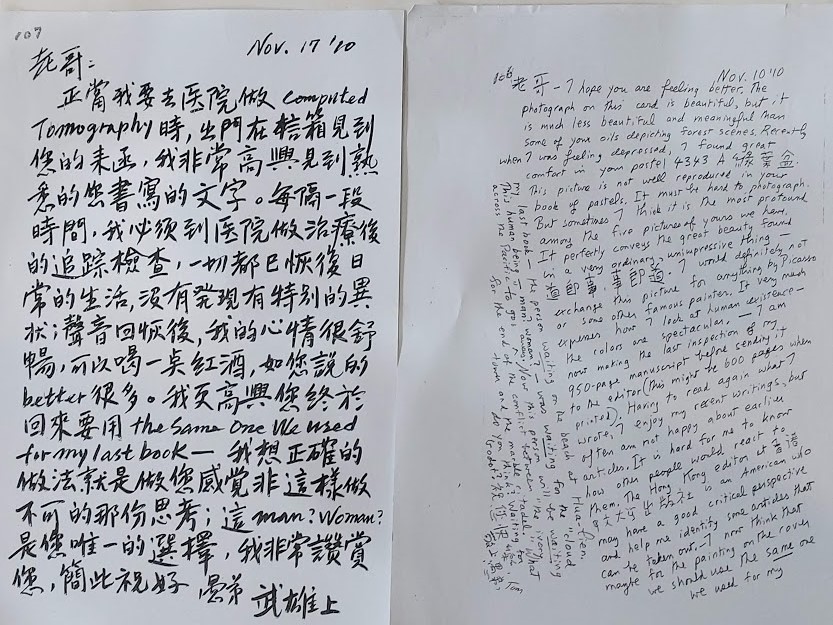 107
Nov. 17 '10
正當我要去医院做 computed
Tomography 時，出門在信箱見到
您的來函，我非常高興見到熟
悉的您書寫的文字。每隔一段
時間，我必須到医院做治療後
的追踪檢查，一切都已恢復日
常的生活，沒有發現有特別的異
狀；聲音回恢後，我的心情很舒
暢，可以喝一点紅酒，如您說的
better 很多。我更高興您終於
回來要用 the same one we used
for my last book — 我想正確的
做法就是做您感覺非這樣做
不可的那份思考；這 man? Woman?
是您唯一的選擇，我非常讚賞
您，簡此祝好
武雄上
106
Nov. 10 '10
老哥 — I hope you are feeling better. The
photograph on this card is beautiful, but it
is much less beautiful and meaningful than
some of your oils depicting forest scenes. Recently
when I was feeling depressed, I found great
comfort in your pastel 4343 A
This picture is not well reproduced in your
book of pastels. It must be hard to photograph.
But sometimes I think it is the most profound
among the five pictures of yours we have.
It perfectly conveys the great beauty found
in a very ordinary, unimpressive thing
I would definitely not
exchange this picture for anything by Picasso
or some other famous painter. It very much
expresses how I look at human existence —
the colors are spectacular. — I am
now making the last inspection of my
950-page manuscript before sending it
to the editor (this might be 600 pages when
printed). Having to read again what I
wrote, I enjoy my recent writings, but
often am not happy about earlier
articles. It is hard for me to know
how other people would react to
them. The Hong Kong editor at 香港
中文大學出版社 is an American who
may have a good critical perspective
and help me identify some articles that
can be taken out. I now think that
maybe for the painting on the cover
we should use the same one
we used for my
my last book — the person waiting on the beach at Hua-lien.
This human being — man? woman? — was waiting for the cloud
across the Pacific to go away. Now this person will be waiting
for the end of the conflict between the ivory
tower and the marble citadel. What
do you think? Waiting for
Godot?